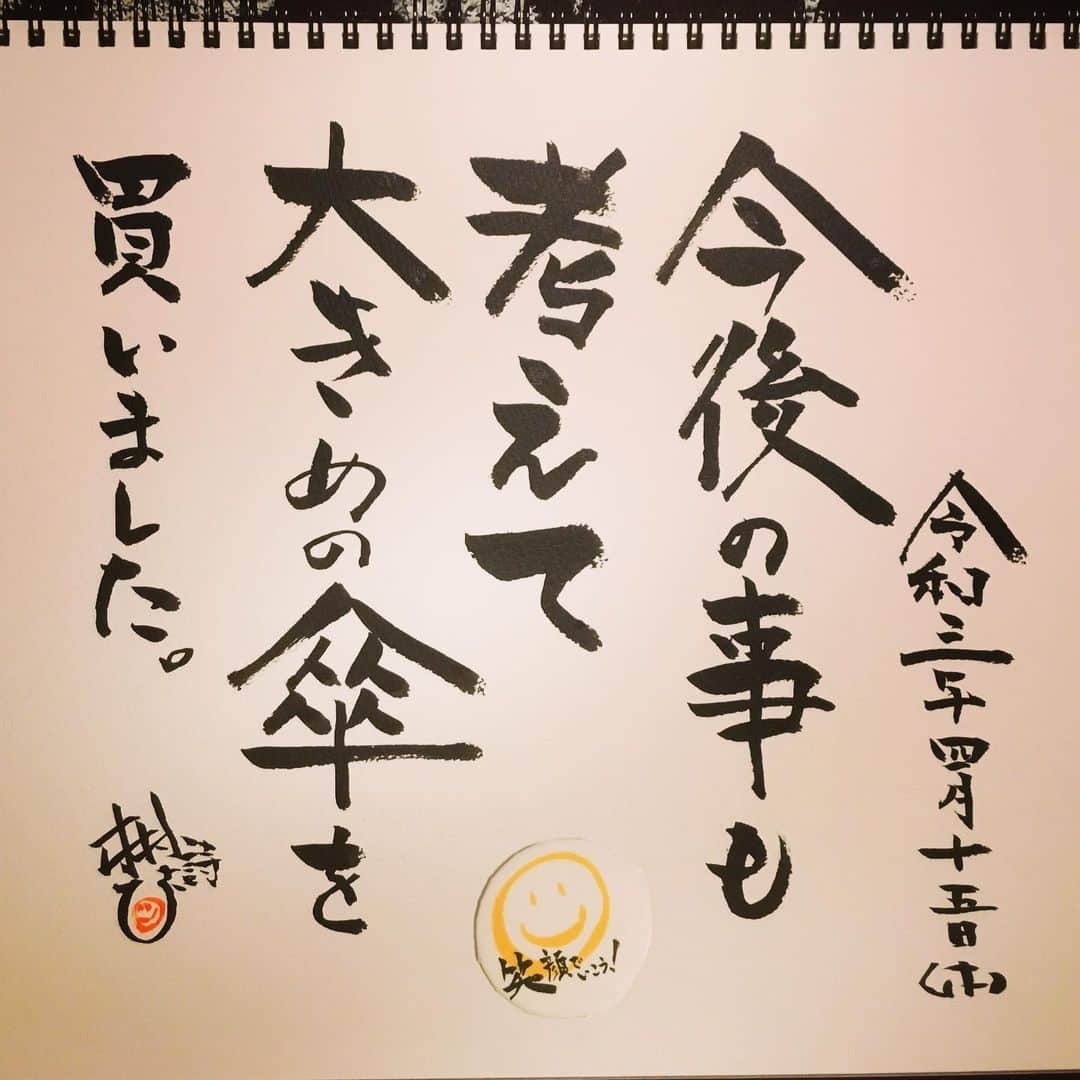 令和三年四月十五日(木)
今後の事も
考えて
大きめの傘を
買いました。
笑顔でいこう!